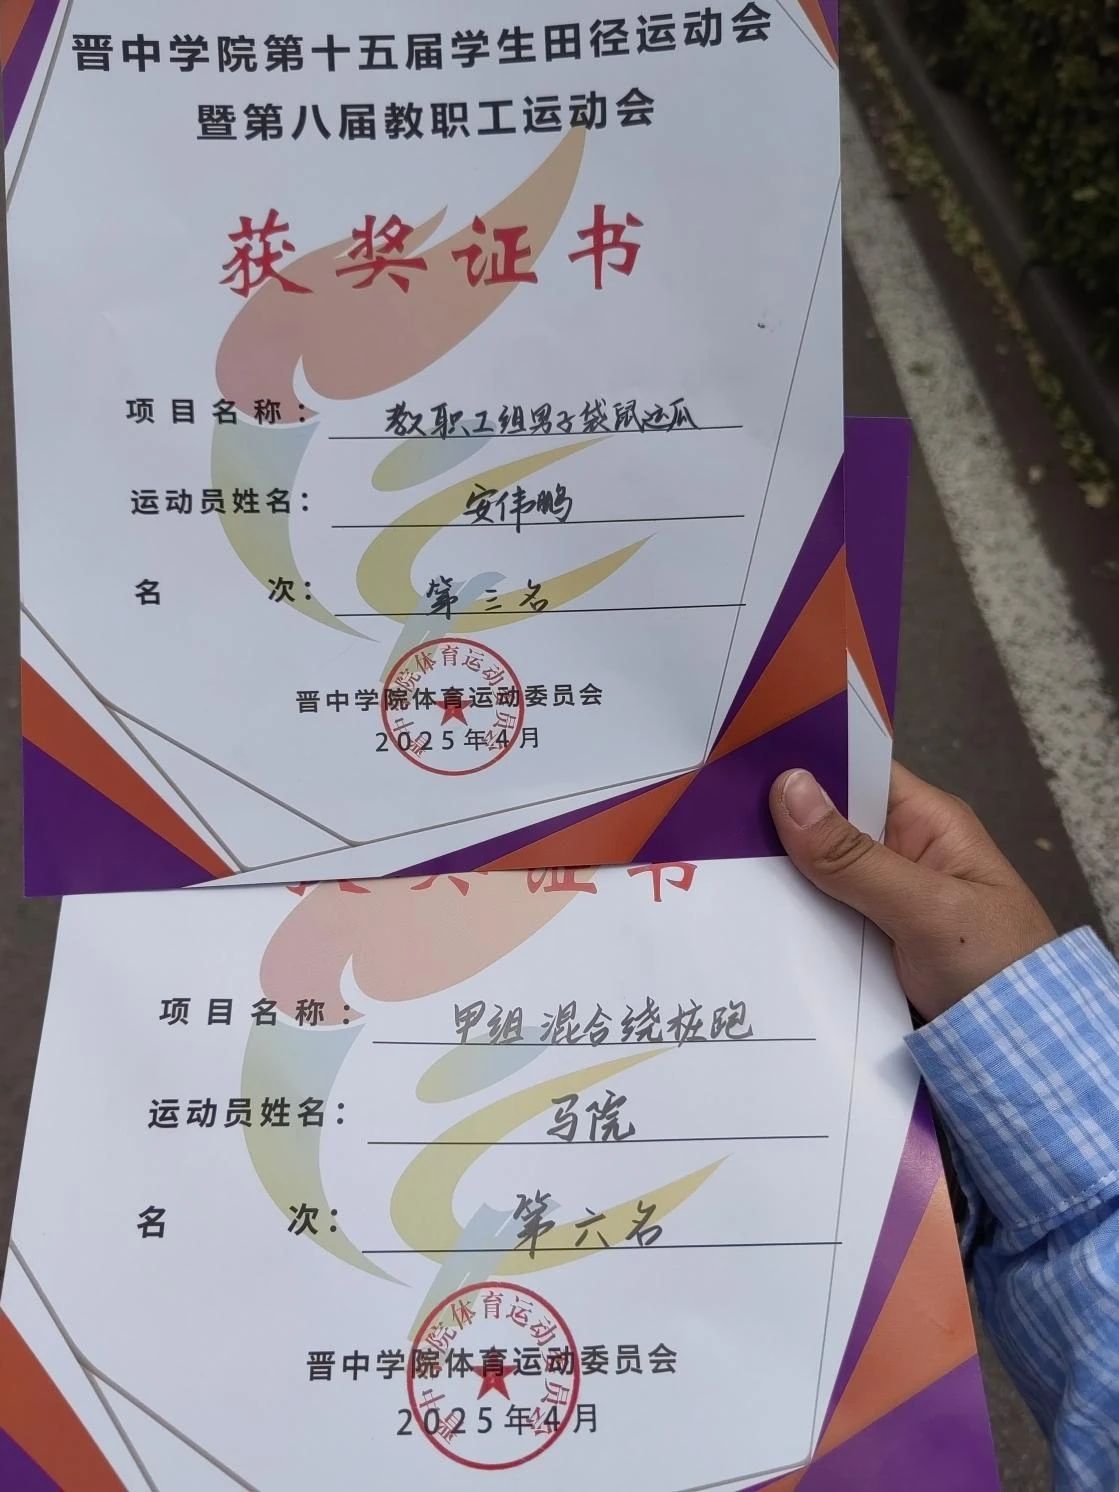 晋中学院第十五届学生田径运动会
暨第八届教职工运动会
获奖证书
项目名称：教职工组男子袋鼠运瓜
运动员姓名：安伟鹏
名次：第三名
晋中学院体育运动委员会
晋中学院体育运动委员会
2025年4月
获奖证书
项目名称：甲组混合绕桩跑
运动员姓名：马院
名次：第六名
晋中学院体育运动委员会
晋中学院体育运动委员会
2025年4月